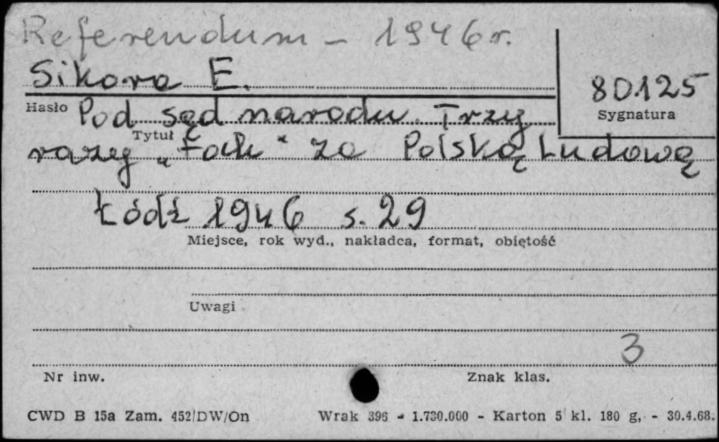 Referendum - 1946 r.
Sikora E.
80125
Hasło
Sygnatura
Pod sąd narodu. Trzy
Tytuł
razy "Tak" za Polską Ludową
Łódź 1946 s. 29
Miejsce, rok wyd., nakładca, format, objętość
Uwagi
3
Nr inw.
Znak klas.
CWD B 15a Zam. 452/DW/On Wrak 396 - 1.730.000 - Karton 5 kl. 180 g, - 30.4.68.